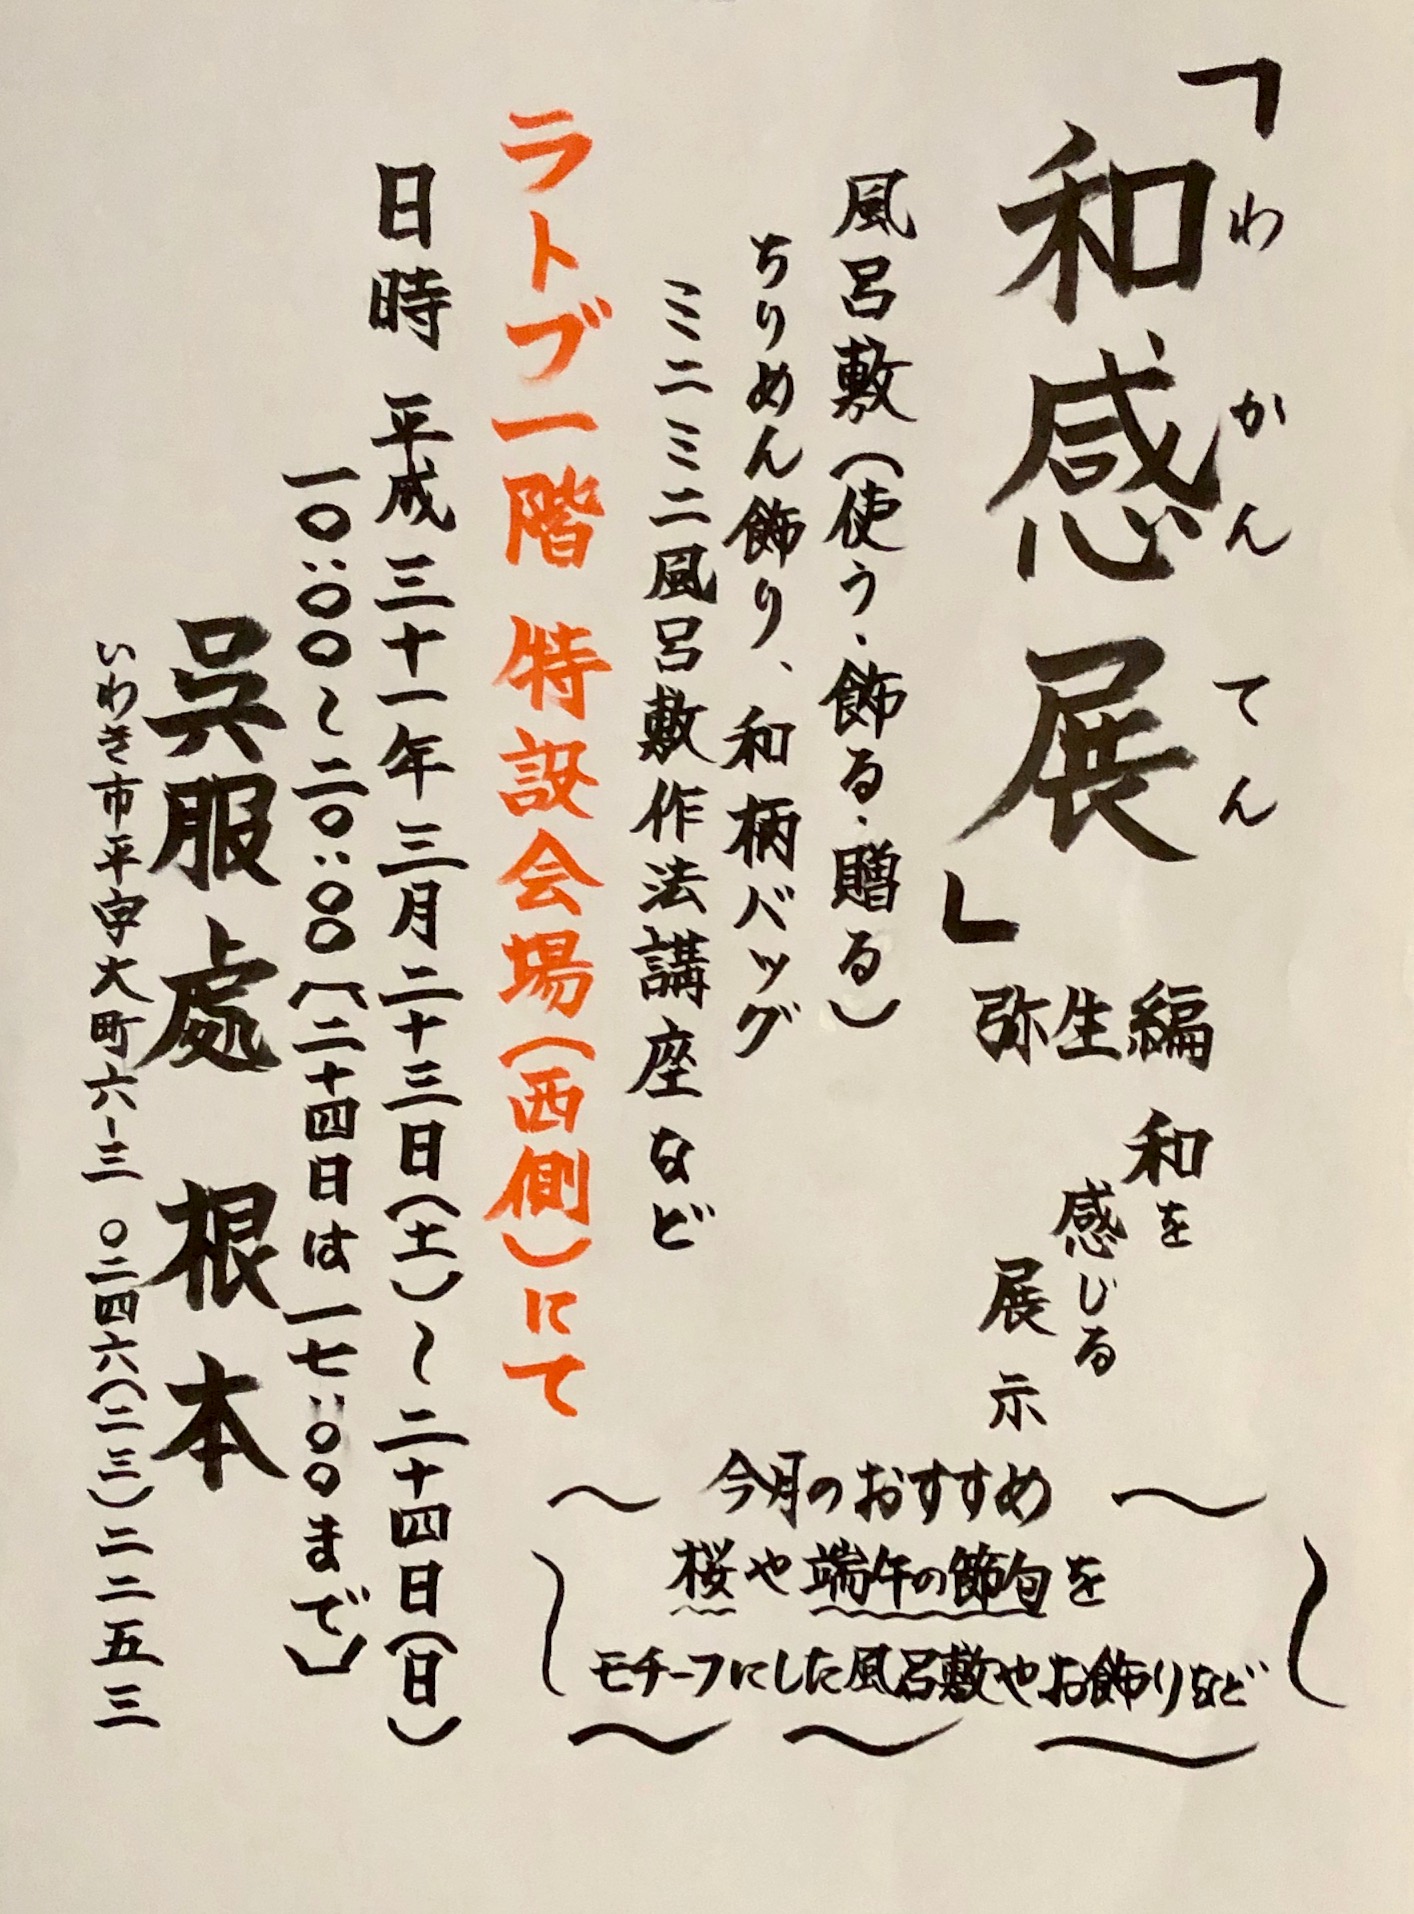 「和感展」
わかんてん
弥生編
和を
感じる
展示
風呂敷(使う・飾る・贈る)
ちりめん飾り、和柄バッグ
ミニミニ風呂敷作法講座など
ラトブ一階 特設会場(西側)にて
日時 平成三十一年三月二十三日(土)~二十四日(日)
一〇:〇〇~二〇:〇〇〔二十四日は一七:〇〇まで〕
呉服處 根本
いわき市平字大町六-三 〇二四六(二三)二二五三
今月のおすすめ
桜や端午の節句を
モチーフにした風呂敷やお飾りなど